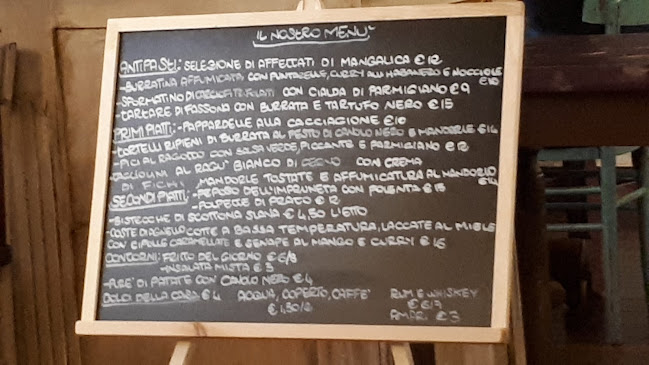 IL NOSTRO MENU'
ANTIPASTI: SELEZIONE DI AFFETTATI DI MANGALICA €12
-BURRATINA AFFUMICATA CON PUNTARELLE, CURRY ALL'HABANERO E NOCCIOLE €10
-SFORMATINO DI CARCIOFI TRIFOLATI CON CIALDA DI PARMIGIANO €9
-TARTARE DI FASSONA CON BURRATA E TARTUFO NERO €15
PRIMI PIATTI: -PAPPARDELLE ALLA CACCIAGIONE €10
-TORTELLI RIPIENI DI BURRATA AL PESTO DI CAVOLO NERO E MANDORLE €14
-PICI AL RAGOTTO CON SALSA VERDE, PICCANTE E PARMIGIANO €12
-TAGLIOLINI AL RAGU' BIANCO DI CON CREMA
DI FICHI, MANDORLE TOSTATE E AFFUMICATURA AL MANDORLO €14
SECONDI PIATTI: -PEPOSO DELL'IMPRUNETA CON POLENTA €15
-POLPETTE DI PRATO €12
-BISTECCHE DI SCOTTONA SLAVA €4,50 L'ETTO
-COSTE D'AGNELLO COTTE A BASSA TEMPERATURA, LACCATE AL MIELE
CON CIPOLLE CARAMELLATE E SENAPE AL MANGO E CURRY €16
CONTORNI: FRITTO DEL GIORNO €6/8
-INSALATA MISTA €3
-PURE' DI PATATE CON CAVOLO NERO €4
DOLCI DELLA CASA €4 ACQUA, COPERTO, CAFFE' RUM E WHISKEY
€1,50/2 €6/7
AMARI €3